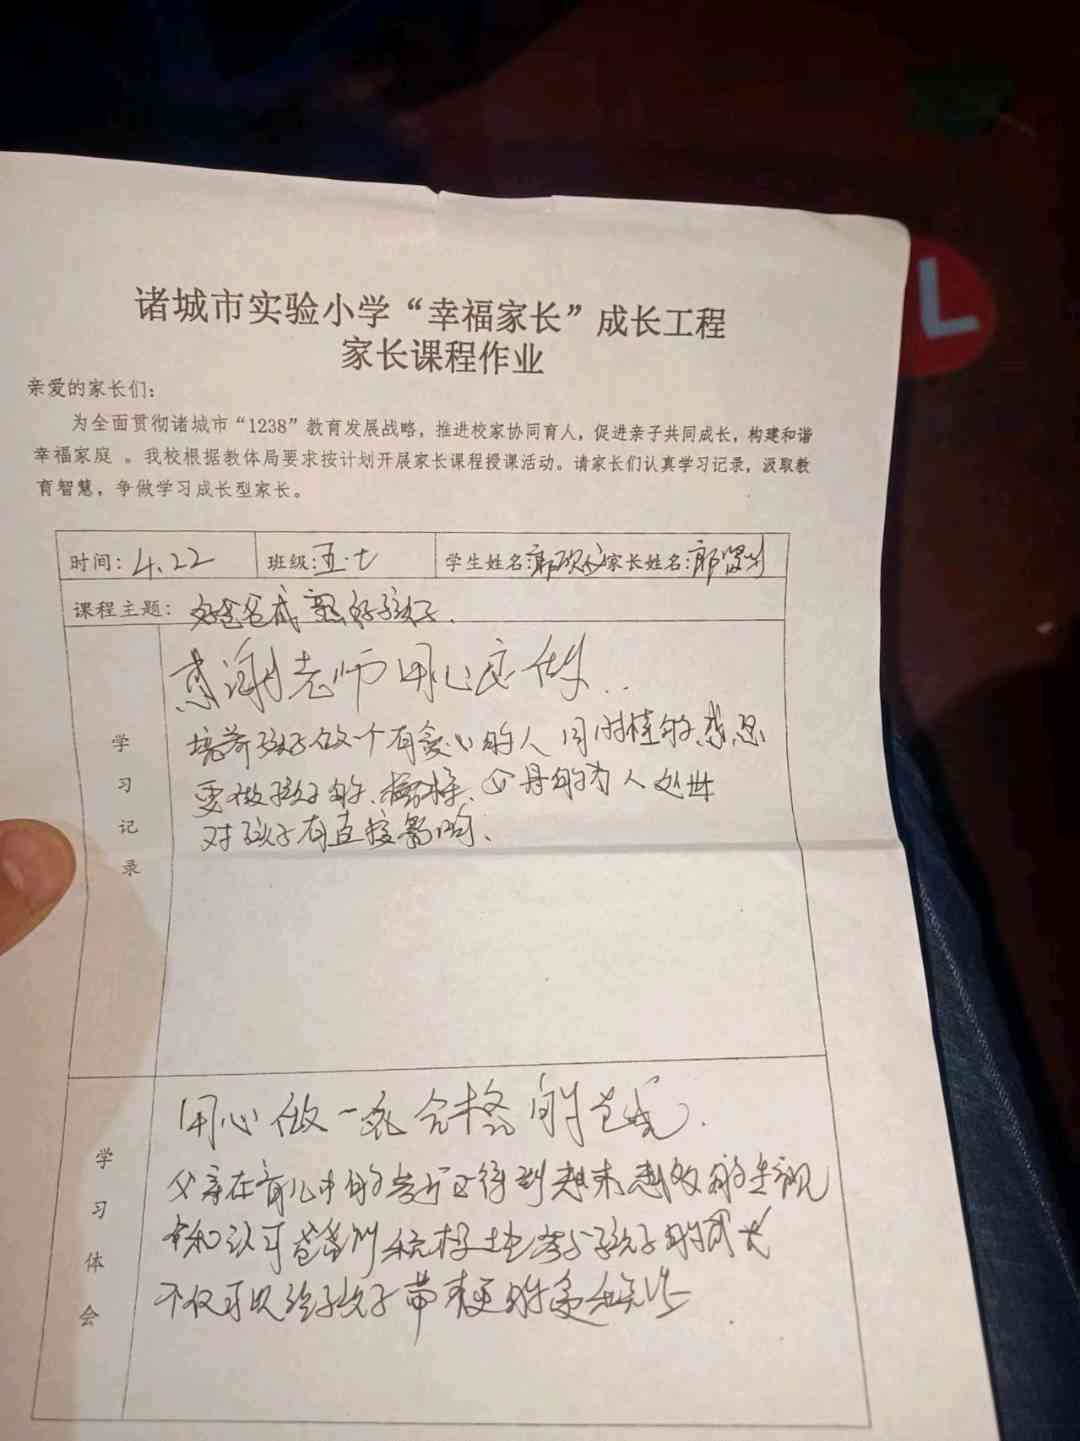 诸城市实验小学“幸福家长”成长工程
家长课程作业
亲爱的家长们：
为全面贯彻诸城市“1238”教育发展战略，推进校家协同育人，促进亲子共同成长，构建和谐
幸福家庭 。我校根据教体局要求按计划开展家长课程授课活动。请家长们认真学习记录，汲取教
育智慧，争做学习成长型家长。
时间：4.22 班级：五.七 学生姓名：郭 家长姓名：郭
课程主题：好爸爸成 好孩子.
学习记录
感谢老师用心 做..
培养孩子做一个有爱心的人 同时 感恩
要做孩子的.榜样、父母的为人处世
对孩子有直接影响.
学习体会
用心做一 合格的爸爸.
父亲在育儿中的 正得到越来越 的重视
和认可 爸爸们积极地参与孩子的成长
不仅可以给孩子带来更
L